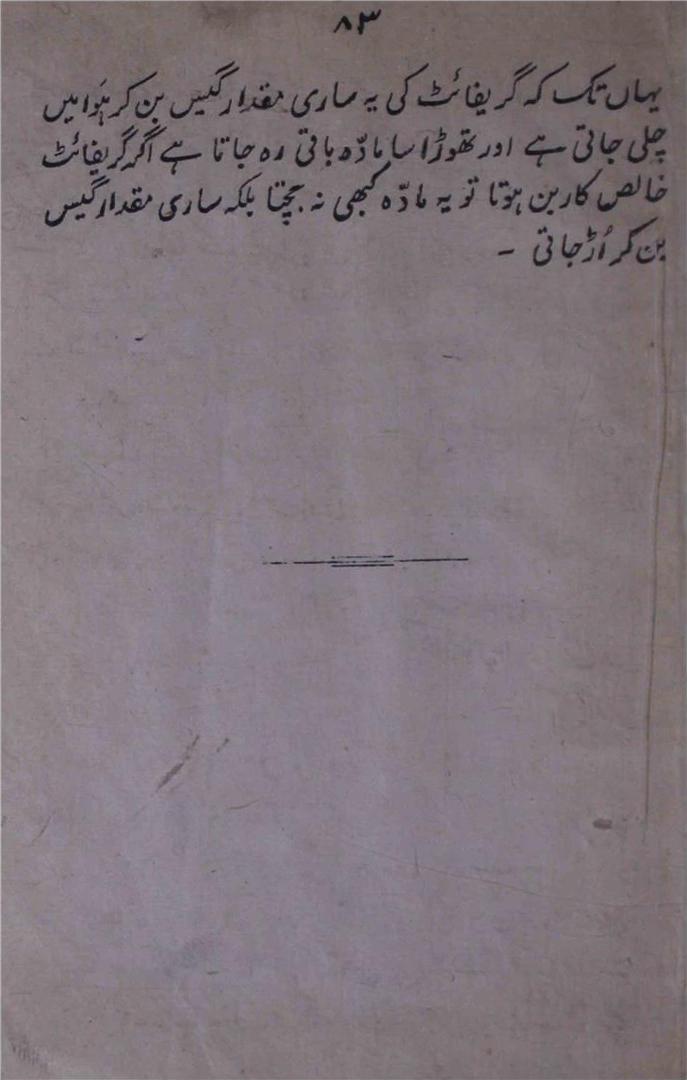 ۸۳
یہاں تک کہ گریفائٹ کی یہ ساری مقدار گیس بن کر ہَوا میں
چلی جاتی ہے اور تھوڑا سا مادّہ باقی رہ جاتا ہے اگر گریفائٹ
خالص کاربن ہوتا تو یہ مادّہ کبھی نہ بچتا بلکہ ساری مقدار گیس
بن کر اُڑ جاتی ۔